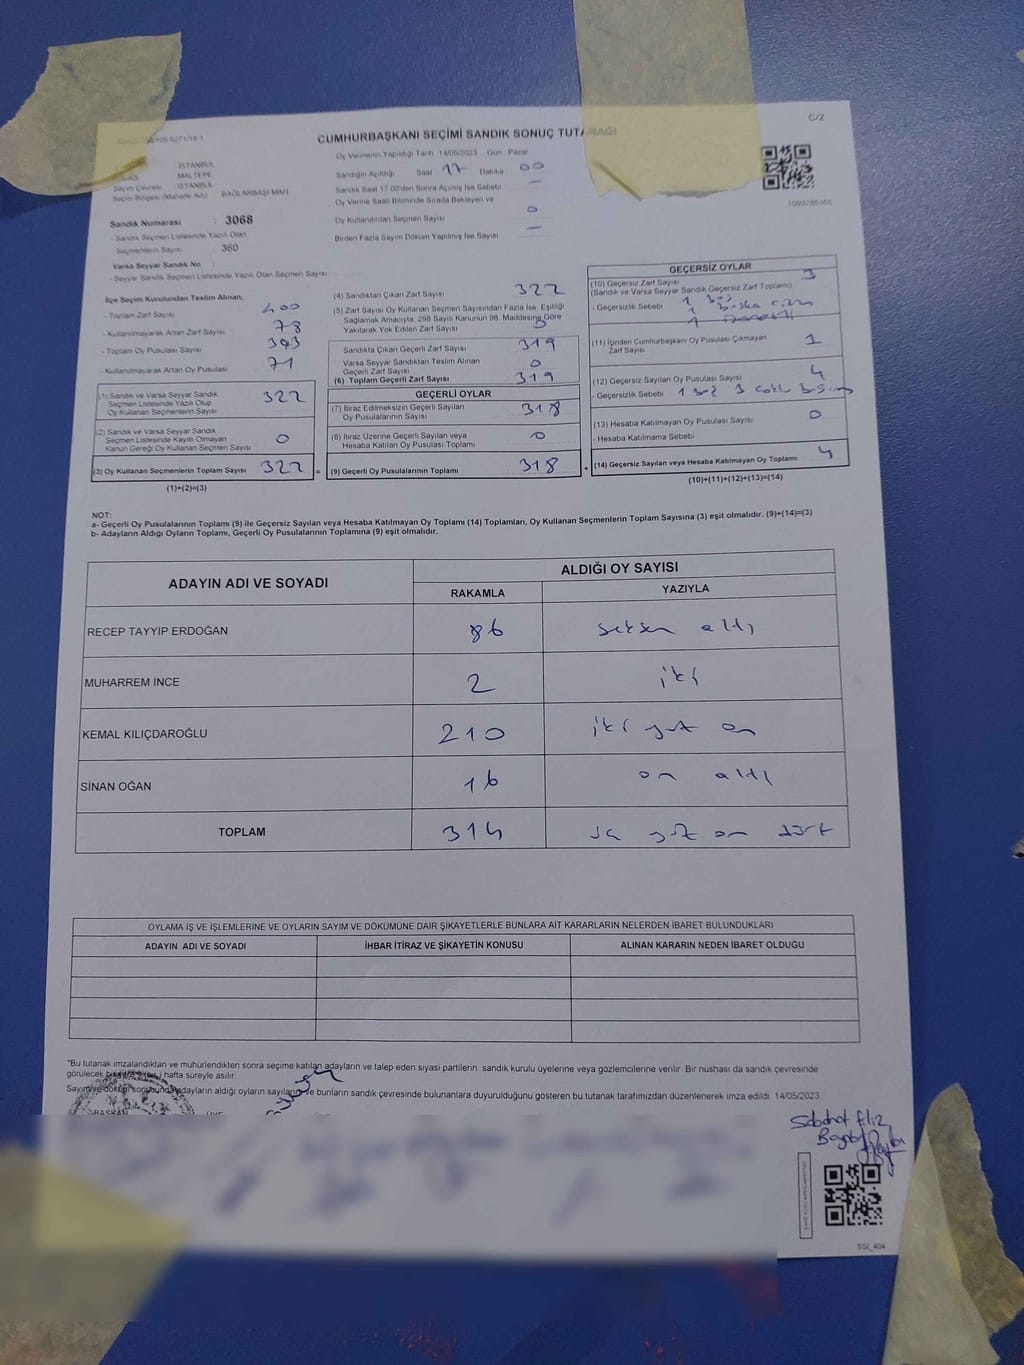 C/2
CUMHURBAŞKANI SEÇİMİ SANDIK SONUÇ TUTANAĞI
Oy Vermenin Yapıldığı Tarih 14/05/2023 Gün Pazar
İSTANBUL
MALTEPE
Seçim Çevresi : İSTANBUL
Seçim Bölgesi (Mahalle Adı) : BAĞLARBAŞI MAH
Sandığın Açıldığı Saat 17 Dakika 00
Sandık Saat 17.00'den Sonra Açılmış İse Sebebi —
Oy Verme Saati Bitiminde Sırada Bekleyen ve
Oy Kullandırılan Seçmen Sayısı 0
Birden Fazla Sayım Döküm Yapılmış İse Sayısı —
Sandık Numarası : 3068
- Sandık Seçmen Listesinde Yazılı Olan
Seçmenlerin Sayısı : 360
Varsa Seyyar Sandık No :
- Seyyar Sandık Seçmen Listesinde Yazılı Olan Seçmen Sayısı
İlçe Seçim Kurulundan Teslim Alınan;
- Toplam Zarf Sayısı 400
- Kullanılmayarak Artan Zarf Sayısı 78
- Toplam Oy Pusulası Sayısı 393
- Kullanılmayarak Artan Oy Pusulası 71
(1) Sandık ve Varsa Seyyar Sandık
Seçmen Listesinde Yazılı Olup
Oy Kullanan Seçmenlerin Sayısı 322
(2) Sandık ve Varsa Seyyar Sandık
Seçmen Listesinde Kayıtlı Olmayan
Kanun Gereği Oy Kullanan Seçmen Sayısı 0
(3) Oy Kullanan Seçmenlerin Toplam Sayısı 322 =
(1)+(2)=(3)
(4) Sandıktan Çıkan Zarf Sayısı 322
(5) Zarf Sayısı Oy Kullanan Seçmen Sayısından Fazla İse, Eşitliği
Sağlamak Amacıyla, 298 Sayılı Kanunun 98. Maddesine Göre
Yakılarak Yok Edilen Zarf Sayısı
Sandıkta Çıkan Geçerli Zarf Sayısı 319
Varsa Seyyar Sandıktan Teslim Alınan
Geçerli Zarf Sayısı 0
(6) Toplam Geçerli Zarf Sayısı 319
GEÇERLİ OYLAR
(7) İtiraz Edilmeksizin Geçerli Sayılan
Oy Pusulalarının Sayısı 318
(8) İtiraz Üzerine Geçerli Sayılan veya
Hesaba Katılan Oy Pusulası Toplamı 0
(9) Geçerli Oy Pusulalarının Toplamı 318 +
GEÇERSİZ OYLAR
(10) Geçersiz Zarf Sayısı 3
(Sandık ve Varsa Seyyar Sandık Geçersiz Zarf Toplamı)
- Geçersizlik Sebebi
(11) İçinden Cumhurbaşkanı Oy Pusulası Çıkmayan
Zarf Sayısı 1
(12) Geçersiz Sayılan Oy Pusulası Sayısı 4
- Geçersizlik Sebebi
(13) Hesaba Katılmayan Oy Pusulası Sayısı 0
- Hesaba Katılmama Sebebi
(14) Geçersiz Sayılan veya Hesaba Katılmayan Oy Toplamı 4
(10)+(11)+(12)+(13)=(14)
NOT:
a- Geçerli Oy Pusulalarının Toplamı (9) ile Geçersiz Sayılan veya Hesaba Katılmayan Oy Toplamı (14) Toplamları, Oy Kullanan Seçmenlerin Toplam Sayısına (3) eşit olmalıdır. (9)+(14)=(3)
b- Adayların Aldığı Oyların Toplamı, Geçerli Oy Pusulalarının Toplamına (9) eşit olmalıdır.
ADAYIN ADI VE SOYADI
ALDIĞI OY SAYISI
RAKAMLA YAZIYLA
RECEP TAYYİP ERDOĞAN 86 seksen altı
MUHARREM İNCE 2 iki
KEMAL KILIÇDAROĞLU 210 iki yüz on
SİNAN OĞAN 16 on altı
TOPLAM 314 üç yüz on dört
OYLAMA İŞ VE İŞLEMLERİNE VE OYLARIN SAYIM VE DÖKÜMÜNE DAİR ŞİKAYETLERLE BUNLARA AİT KARARLARIN NELERDEN İBARET BULUNDUKLARI
ADAYIN ADI VE SOYADI İHBAR İTİRAZ VE ŞİKAYETİN KONUSU ALINAN KARARIN NEDEN İBARET OLDUĞU
*Bu tutanak imzalandıktan ve mühürlendikten sonra seçime katılan adayların ve talep eden siyasi partilerin sandık kurulu üyelerine veya gözlemcilerine verilir. Bir nüshası da sandık çevresinde
görülecek hafta süreyle asılır.
adayların aldığı oyların sayılarını ve bunların sandık çevresinde bulunanlara duyurulduğunu gösteren bu tutanak tarafımızdan düzenlenerek imza edildi. 14/05/2023
BAŞKAN
ÜYE